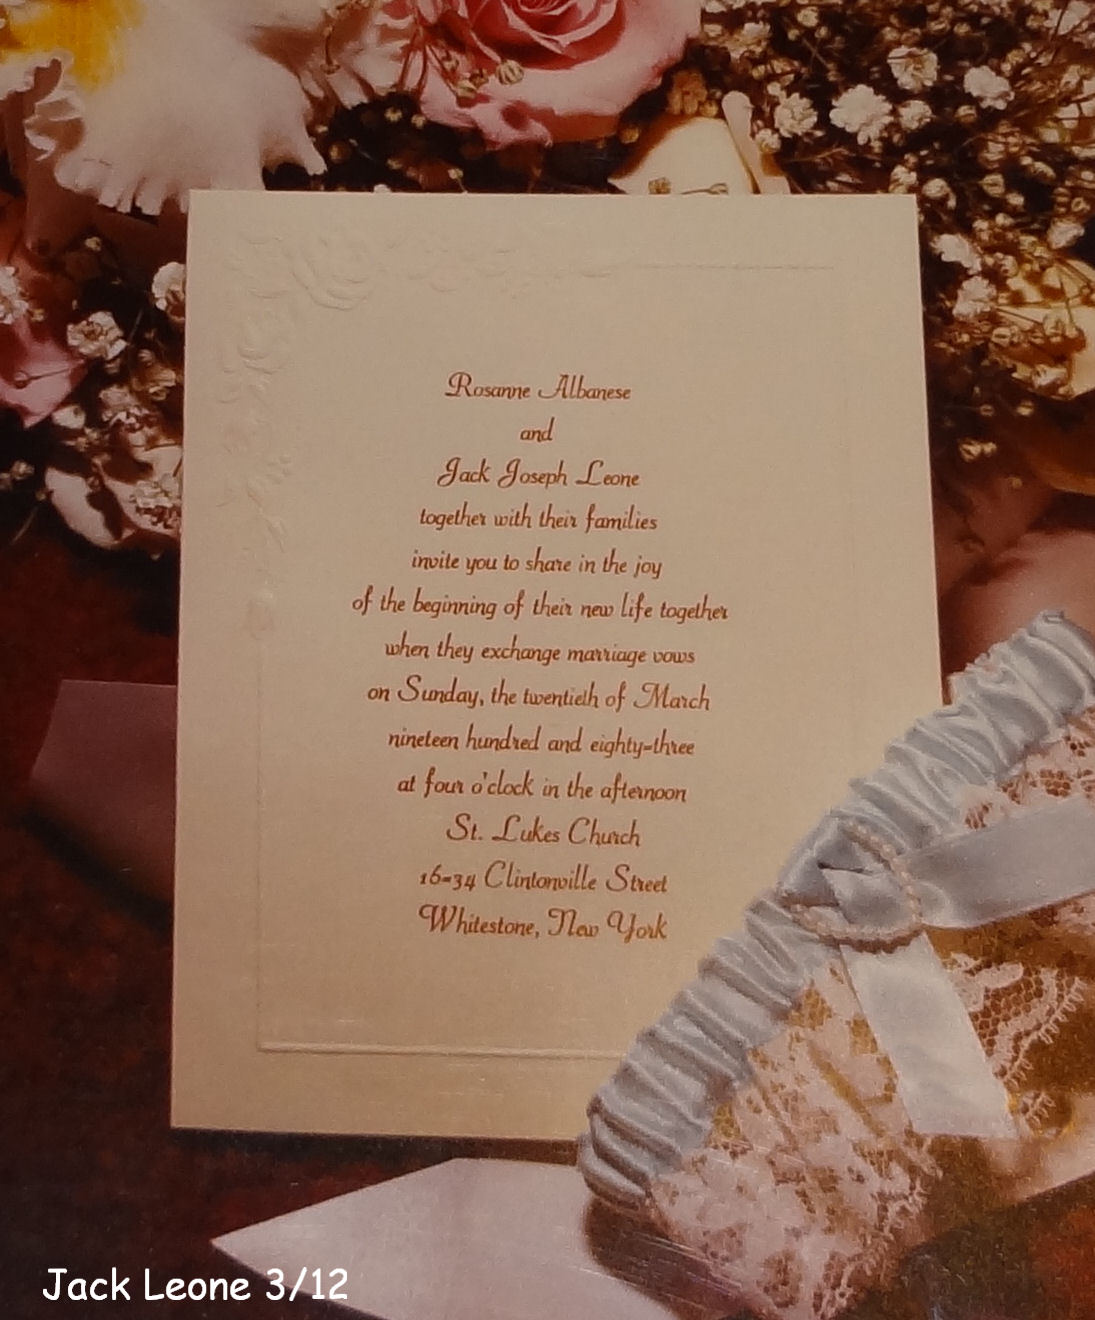 Rosanne Albanese
and
Jack Joseph Leone
together with their families
invite you to share in the joy
of the beginning of their new life together
when they exchange marriage vows
on Sunday, the twentieth of March
nineteen hundred and eighty-three
at four o'clock in the afternoon
St. Lukes Church
16-34 Clintonville Street
Whitestone, New York
Jack Leone 3/12